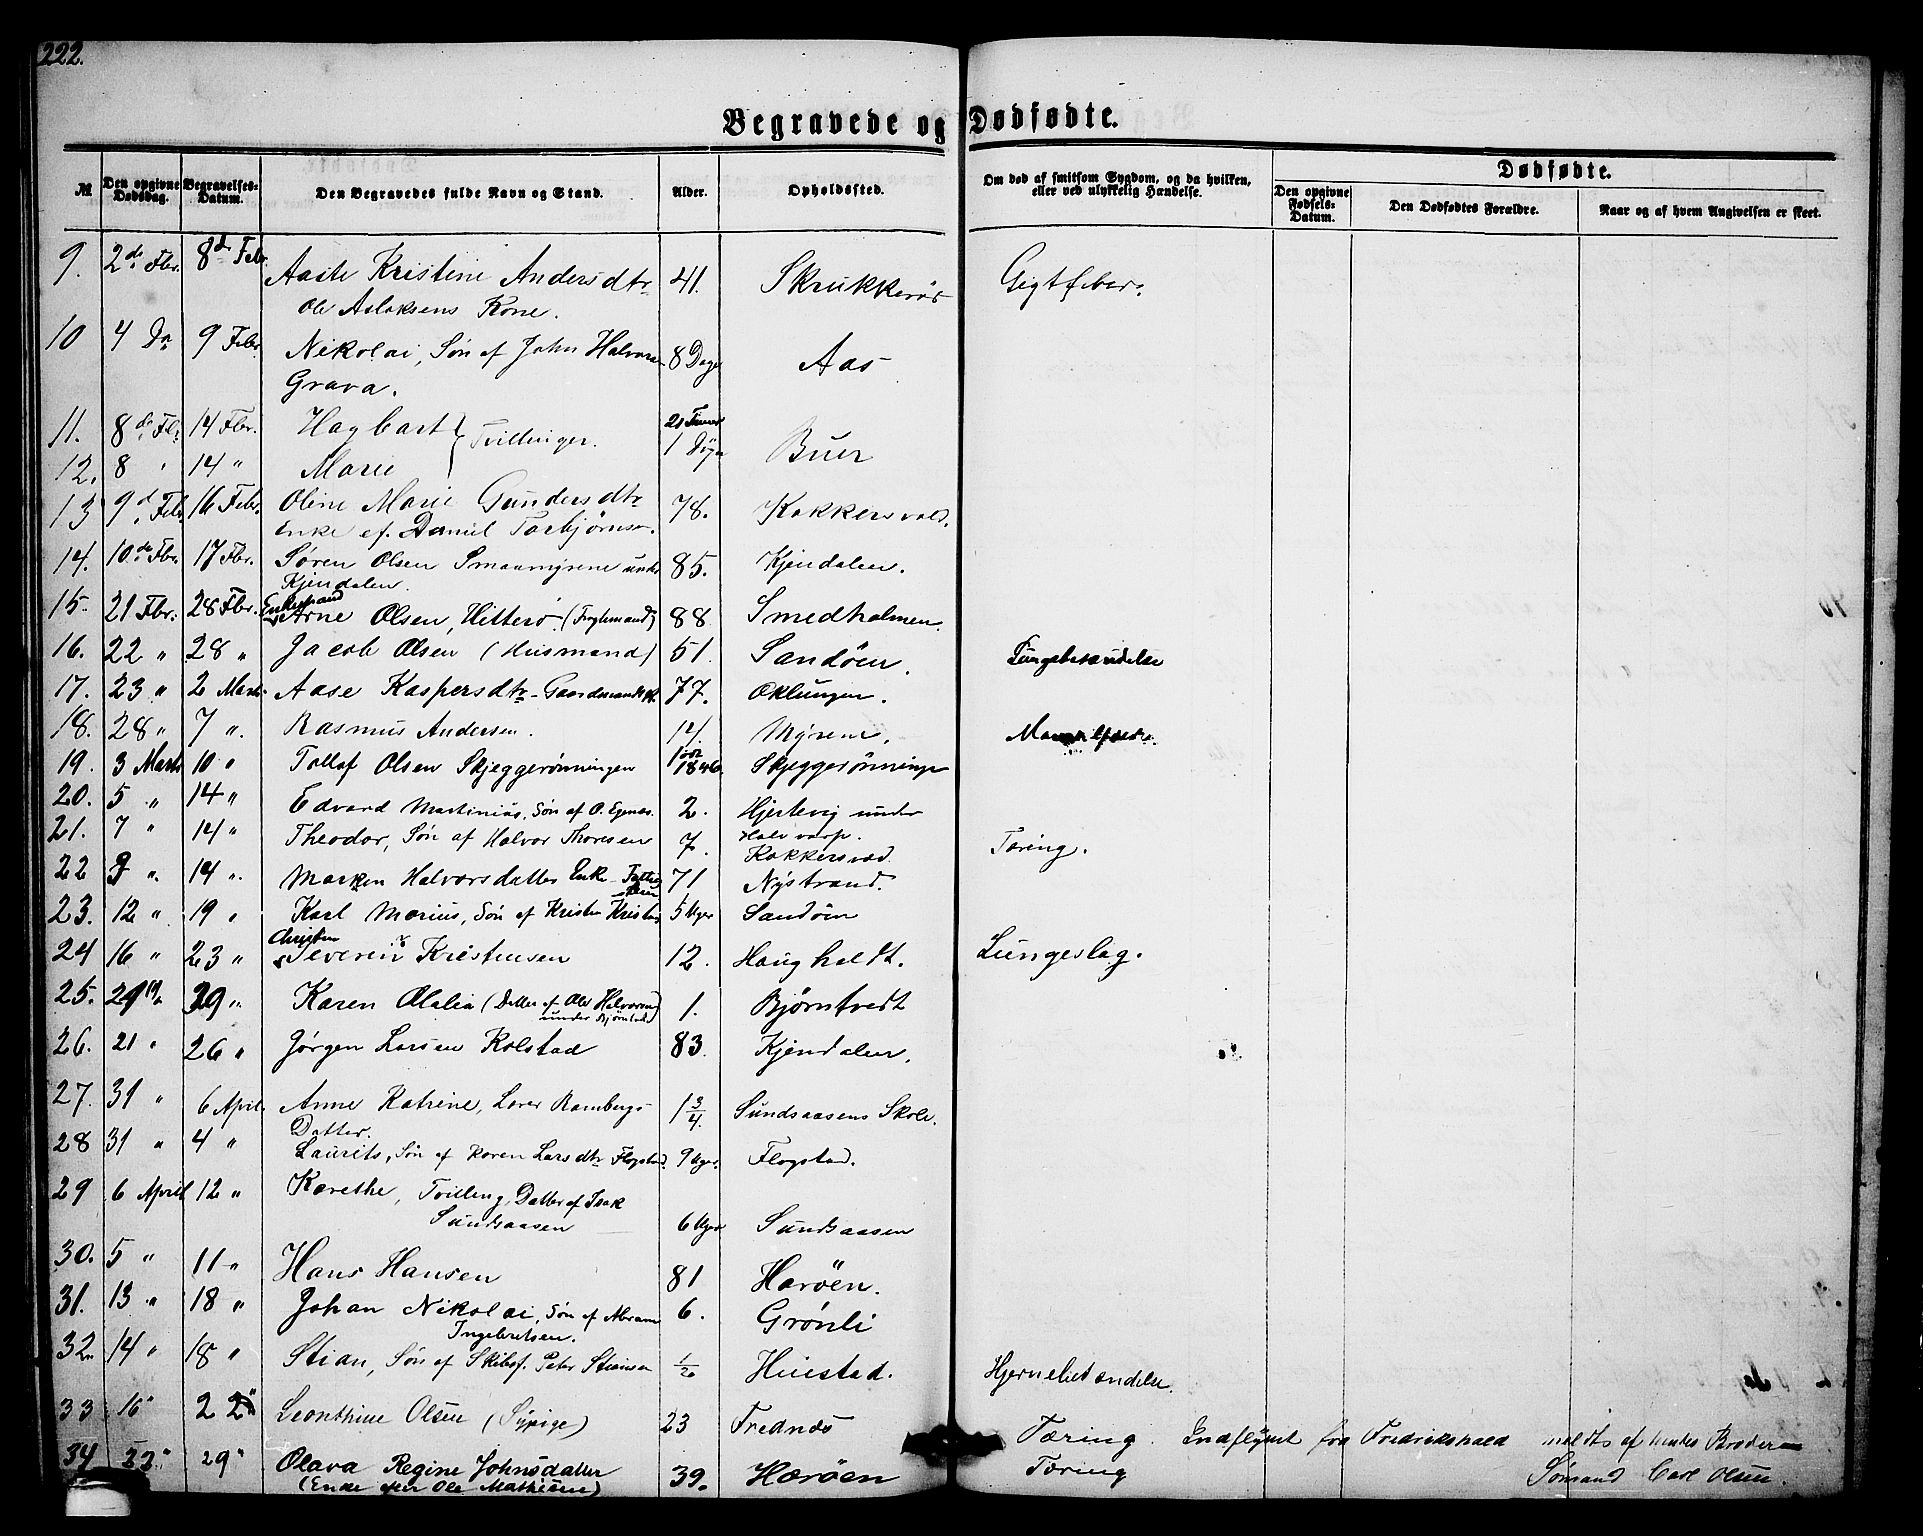 222.
Begravede og Dødfødte.
№ Den opgivne Dødsdag. Begravelses-Datum. Den Begravedes fulde Navn og Stand. Alder. Opholdssted. Om død af smitsom Sygdom, og da hvilken, eller ved ulykkelig Hændelse. Dødfødte.
Den opgivne Fødsels-Datum. Den Dødfødtes Forældre. Naar og af hvem Angivelsen er skeet.
9. 2de Fbr. 8d Febr. Aaste Kristine Andersdtr 41. Skrukkerød Gigtfeber.
Ole Aslaksens Kone.
10 4 Do 9 Febr. Nikolai, Søn af John Halvorsen 8 Dage Aas
Grava.
11. 8de Fbr. 14 Fbr. Hagbart } Tvillinger. 21 Timer Buer
12. 8 " 14 " Marie 1 Døgn
13 9d Febr. 16 Febr. Oline Marie Gundersdtr 78. Kokkersvold.
Enke ef. Daniel Torbjørns.
14. 10de Fbr. 17 Fbr. Søren Olsen Smaamyrene under 85. Kjendalen.
Kjendalen.
15. 21 Fbr. 28 Fbr. Enkemand Arne Olsen, Hitterø. 88 Smedholmen.
16. 22 " 28 " Jacob Olsen (Husmand) 51. Sandøen. Lungebetændelse
17. 23 " 2 Marts Aase Kaspersdtr Gaardmands 77. Oklungen.
18. 28 " 7 " Rasmus Andersen. 14. Myrene.
19. 3 Marts 10 " Tollef Olsen Skjeggerønningen 1846. Skjeggerønninge
20. 5 " 14 " Edvard Martinius, Søn af O. Egenes. 2. Hjertevig under
21. 7 " 14 " Theodor, Søn af Halvor Thoresen 7. Kokkersvod. Tæring.
22 8 " 14 " Maren Halvorsdatter Enke 71 Nystrand.
23. 12 " 19 " Karl Marius, Søn af Kristen Kristen 5 Uger Sandøen
24 16 " 23 " Christen Severin Kristensen 12. Haugholdt. Lungeslag.
25. 29 " 29 " Karen Olalia (Datter af Ole Halvorsen 1. Bjørntvedt
under Bjørntvedt)
26. 21 " 26 " Jørgen Larsen Kolstad 83. Kjendalen.
27. 31 " 6 April Anne Katrine, Lærer Rambergs 1 3/4 Sundsaasens Skole.
Datter.
28 31 " 4 " Laurits, Søn af Karen Larsdtr Flogstad. 9 Uger. Flogstad.
29 6 April 12 " Karethe, Tvilling, Datter af Isak
Sundsaasen 6 Uger Sundsaasen
30. 5 " 11 " Hans Hansen 81 Herøen.
31. 13 " 18 " Johan Nikolai, Søn af Abram 6. Grønli
Ingebretsen.
32. 14 " 18 " Stian, Søn af Skibsf. Peter Stiansen 1/2 Huestad. Hjernebetændelse.
33 16 " 22 " Leonthine Olsen (Sypige) 23 Frednæs Tæring. Indflyttet fra Fredrikshald meldts af hendes Broder
34 22 " 29 " Olava Regine Johnsdatter 39. Herøen Tæring Sømand Carl Olsen.
(Enke efter Ole Mathisen)